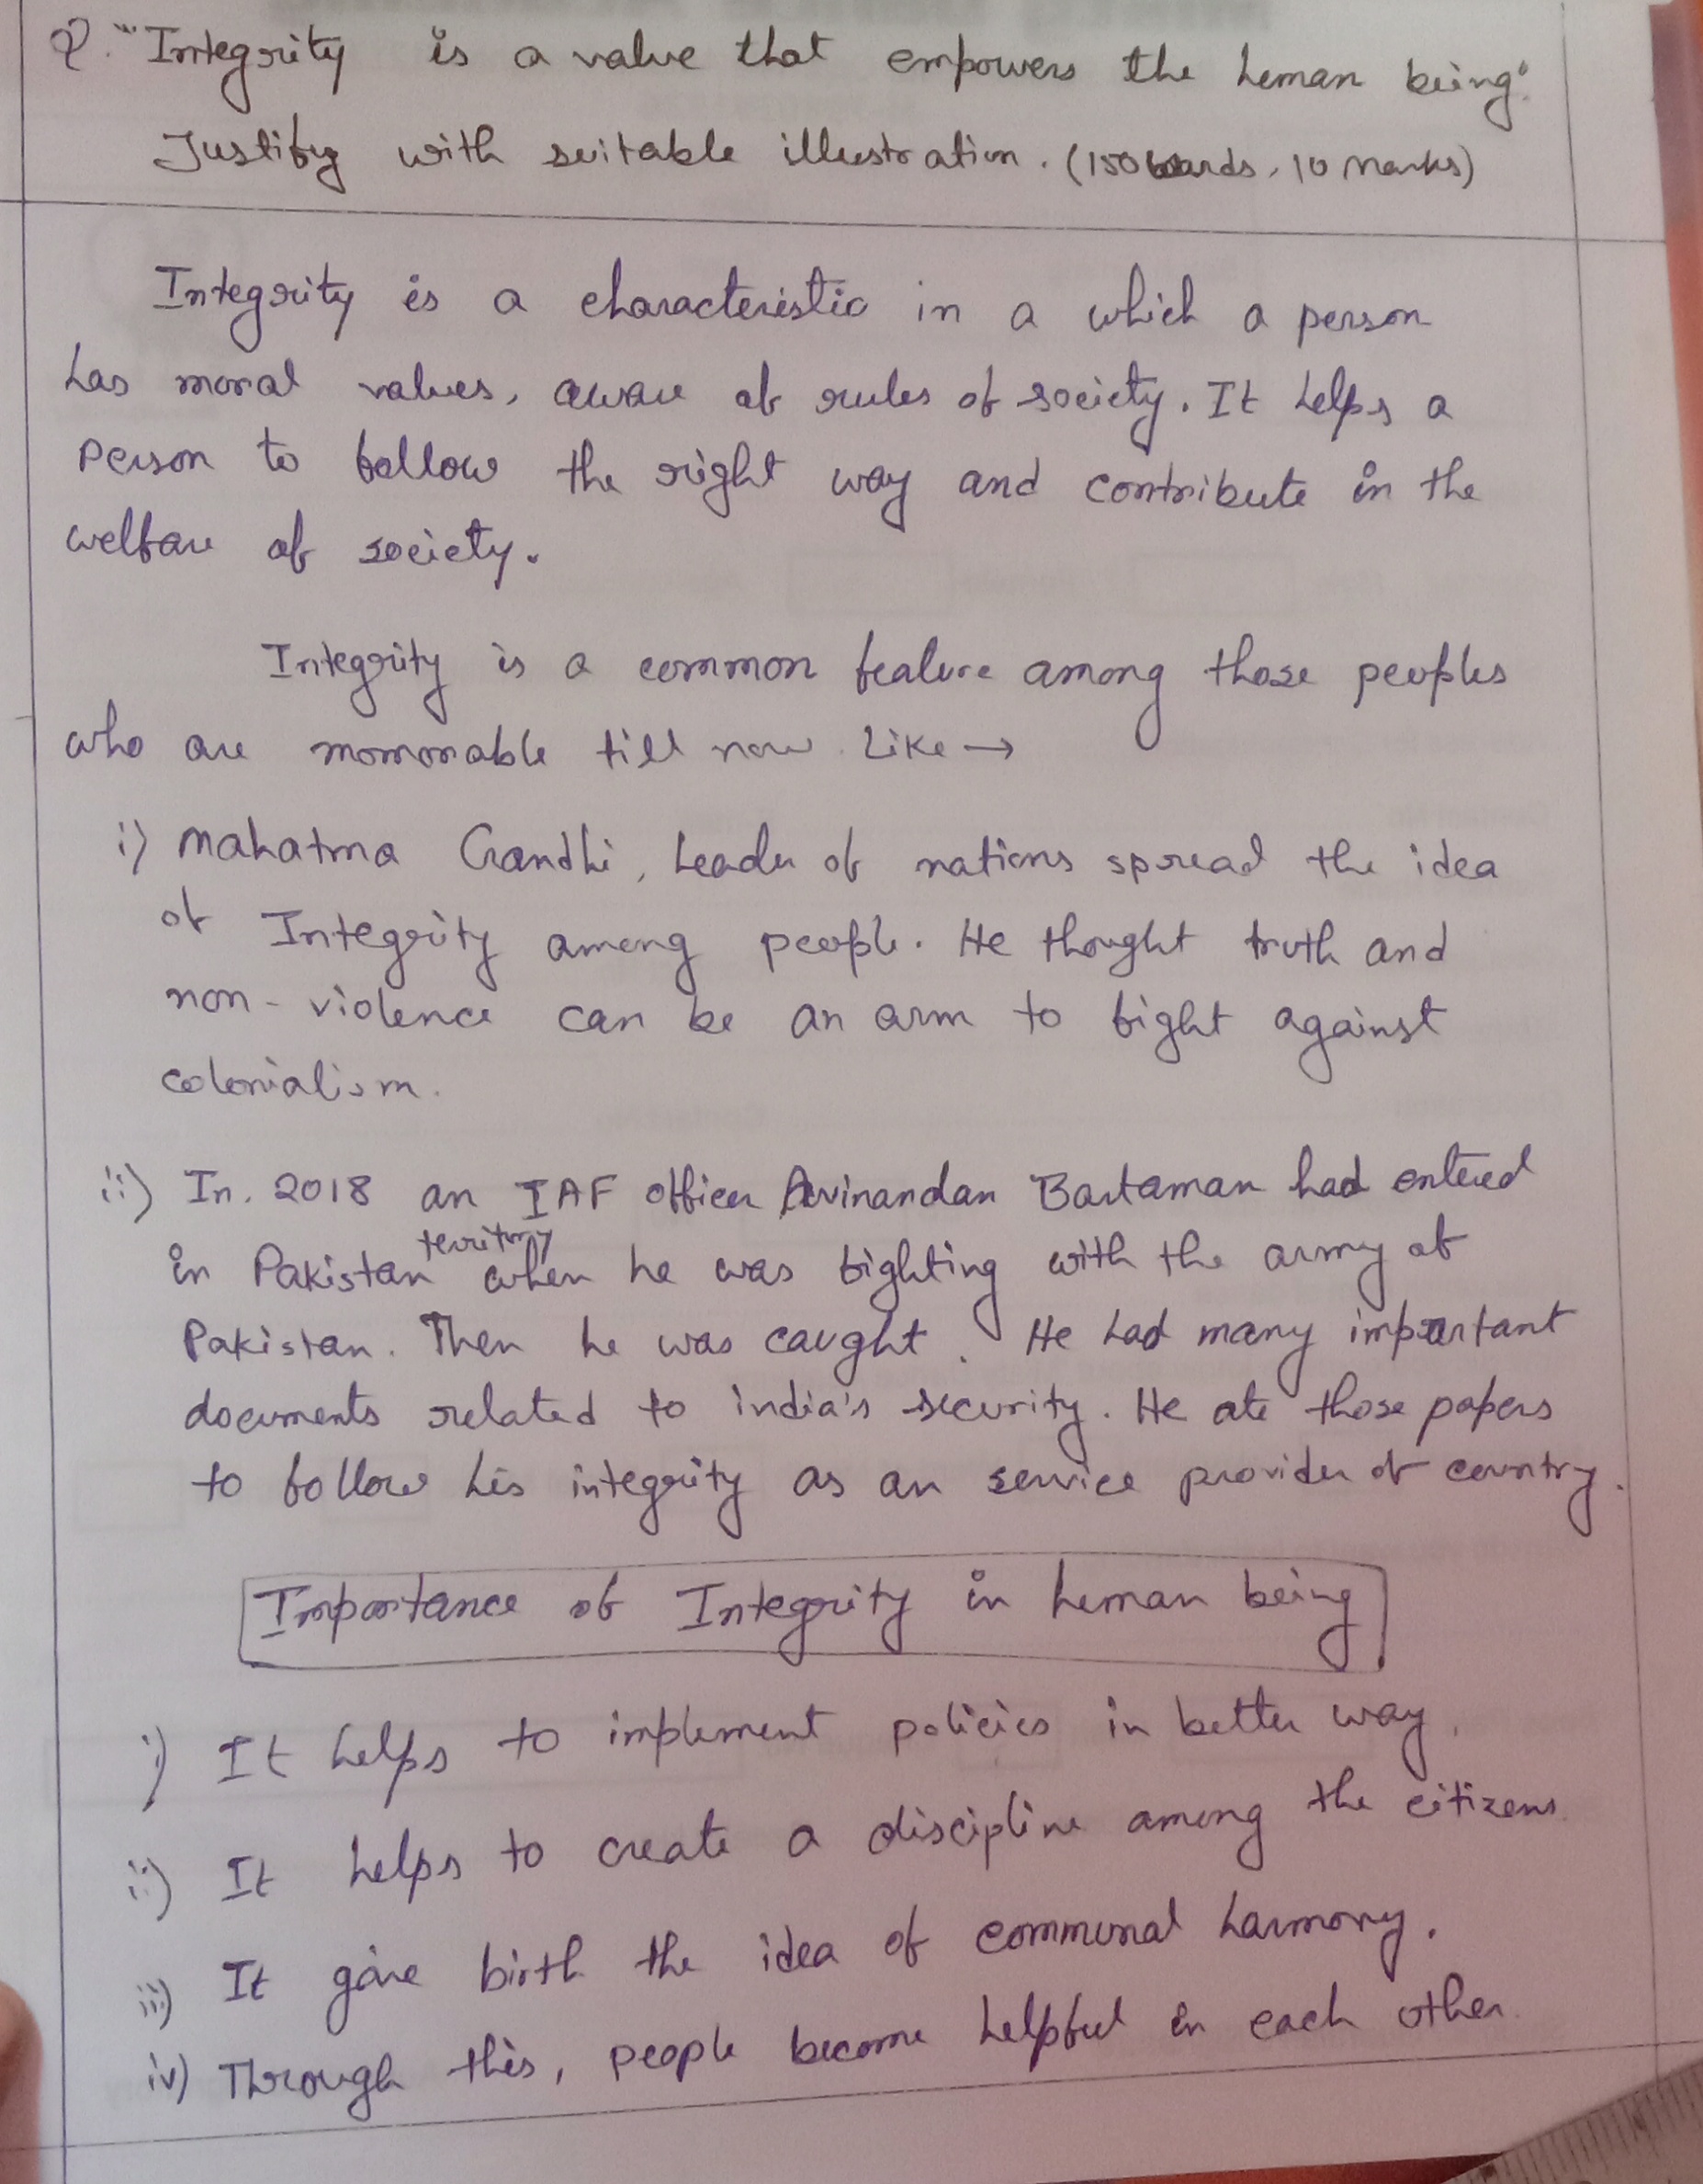 Q. "Integrity is a value that empowers the human being"
Justify with suitable illustration. (150 words, 10 Marks)
Integrity is a characteristic in a which a person
has moral values, aware of rules of society. It helps a
Person to follow the right way and contribute in the
welfare of society.
Integrity is a common feature among those peoples
who are momorable till now. Like →
i) Mahatma Gandhi, Leader of nations spread the idea
of Integrity among people. He thought truth and
non-violence can be an arm to fight against
colonialism.
ii) In. 2018 an IAF officer Avinandan Bartaman had entered
in Pakistan territory when he was fighting with the army of
Pakistan. Then he was caught. He had many important
documents related to india's security. He ate those papers
to follow his integrity as an service provider of country.
Importance of Integrity in human being
i) It helps to implement policies in better way.
ii) It helps to create a discipline among the citizens.
iii) It gave birth the idea of communal harmony.
iv) Through this, people become helpful in each other.